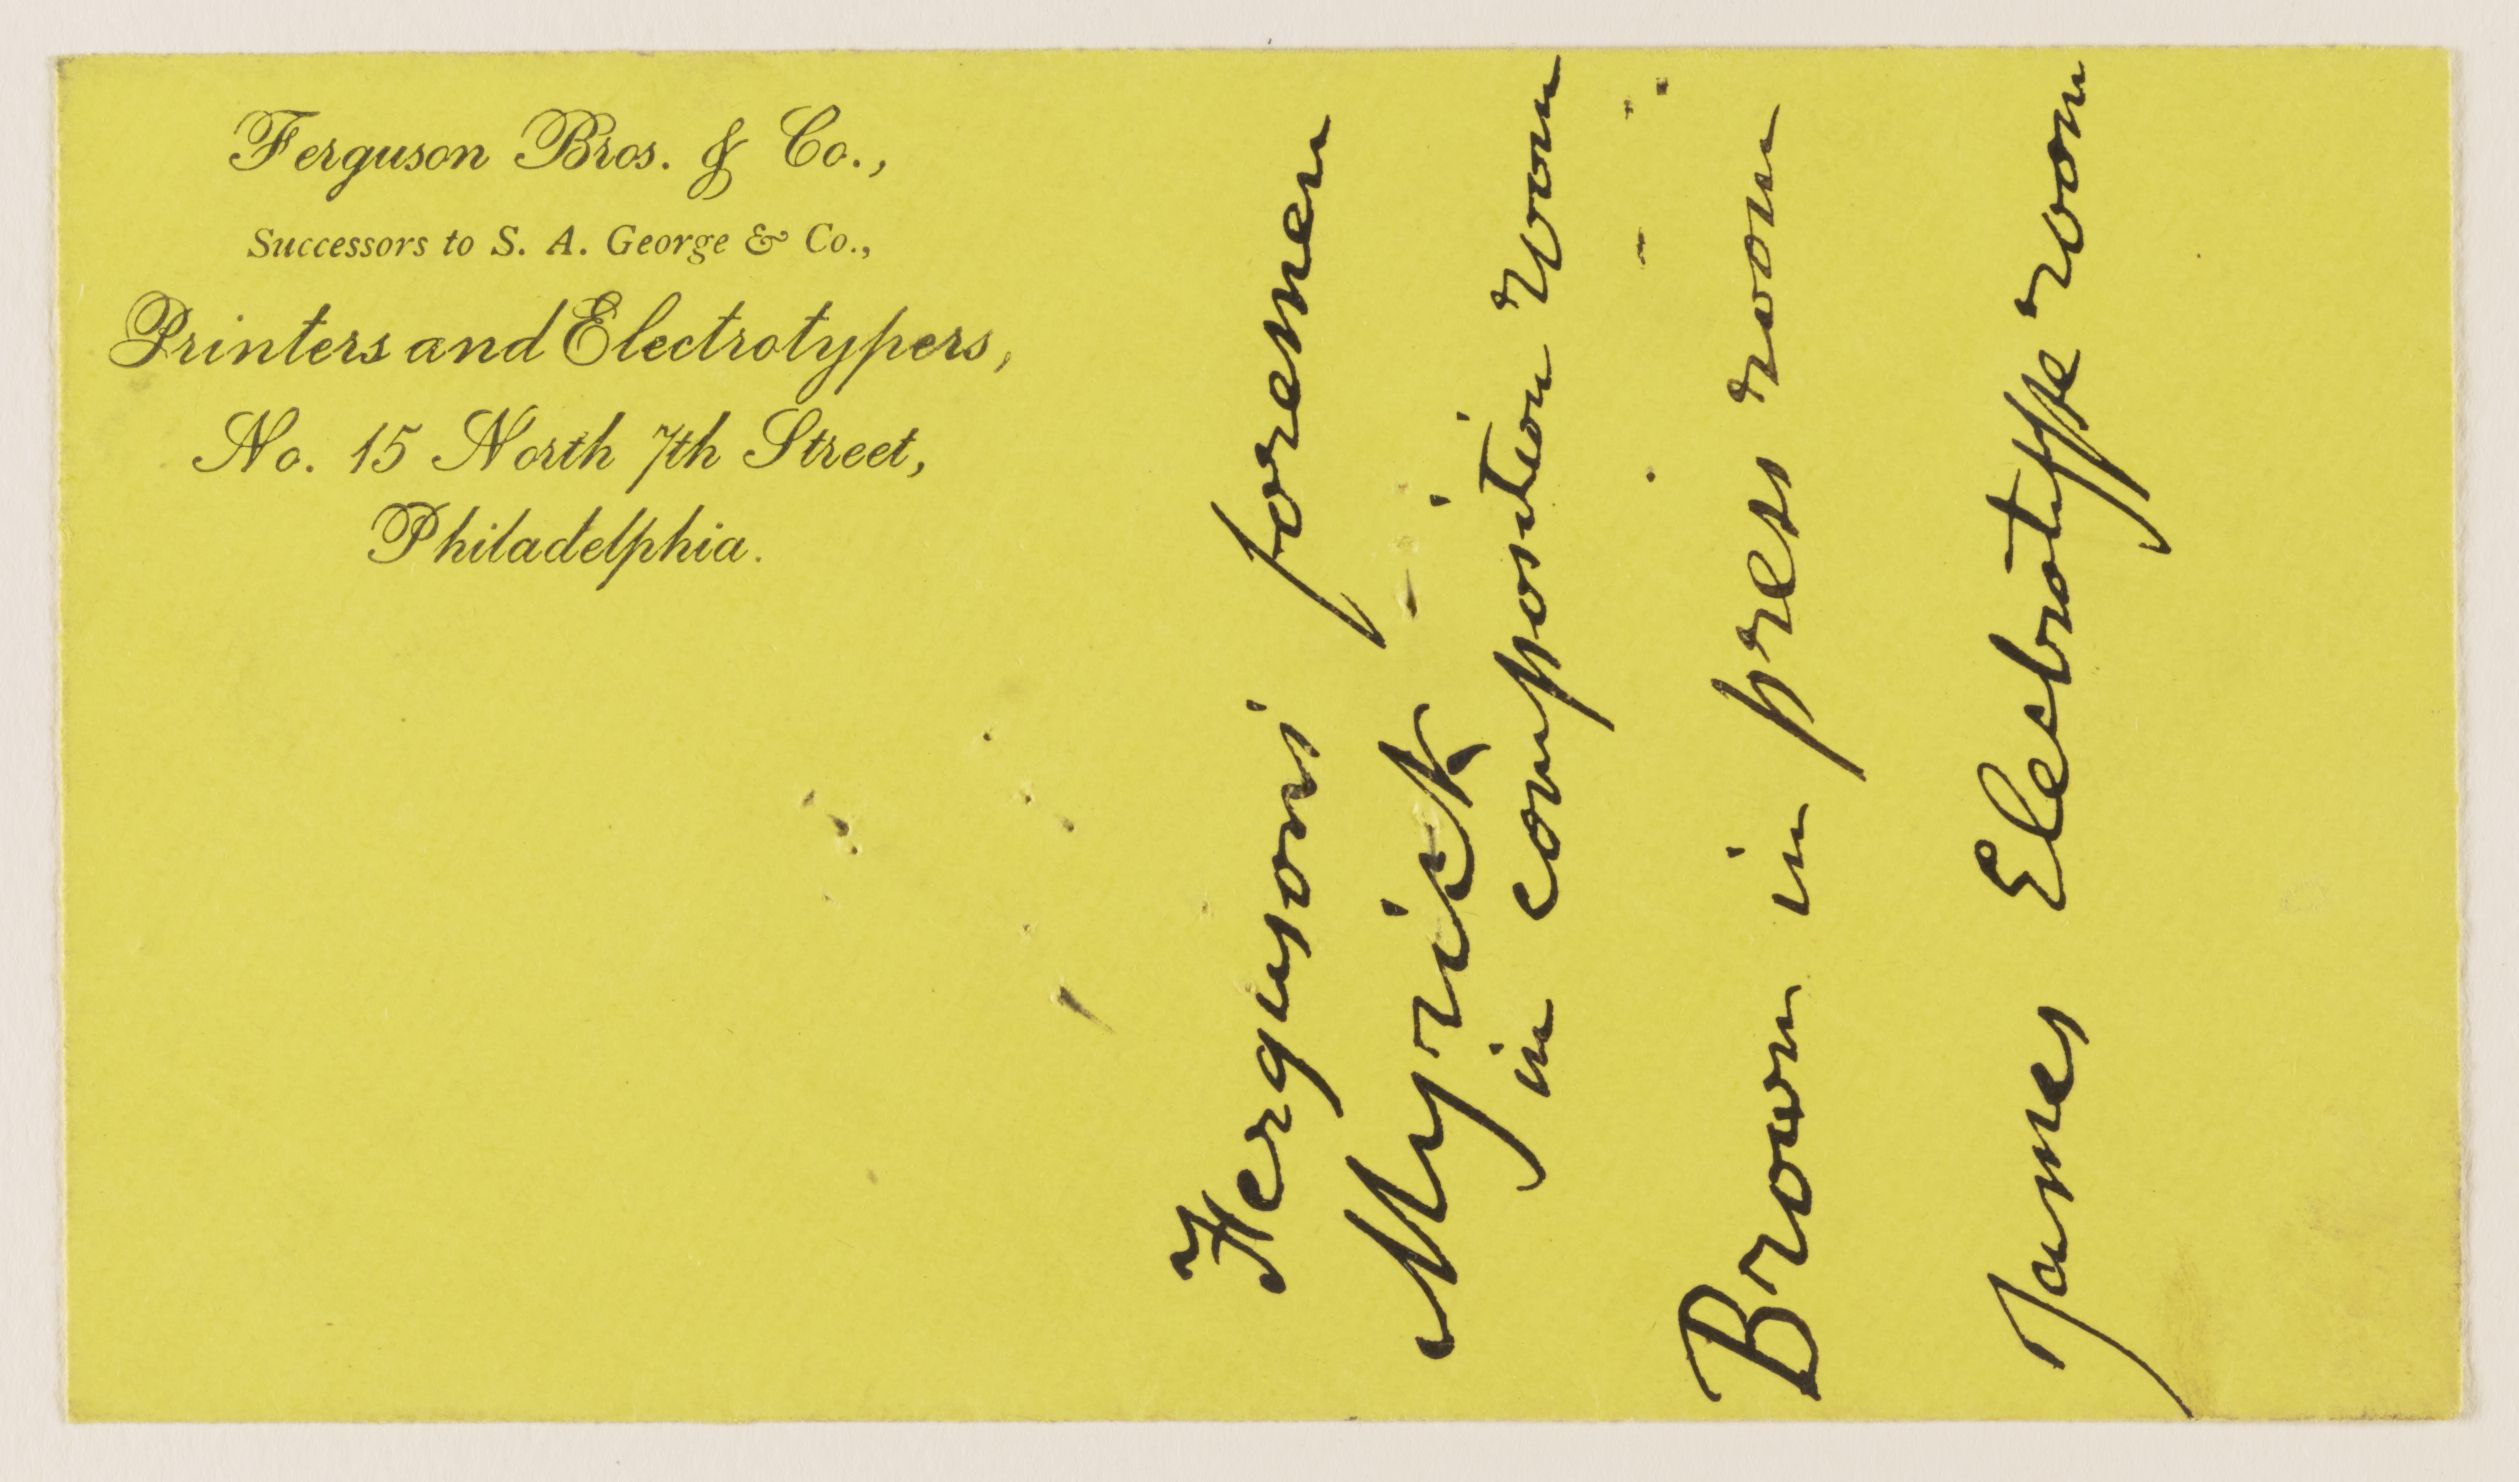 Ferguson Bros. & Co.,
Successors to S. A. George & Co.,
Printers and Electrotypers,
No. 15 North 7th Street,
Philadelphia.
Ferguson's foremen
Myrick
in composition room
Brown in press room
James Elecbrotype room